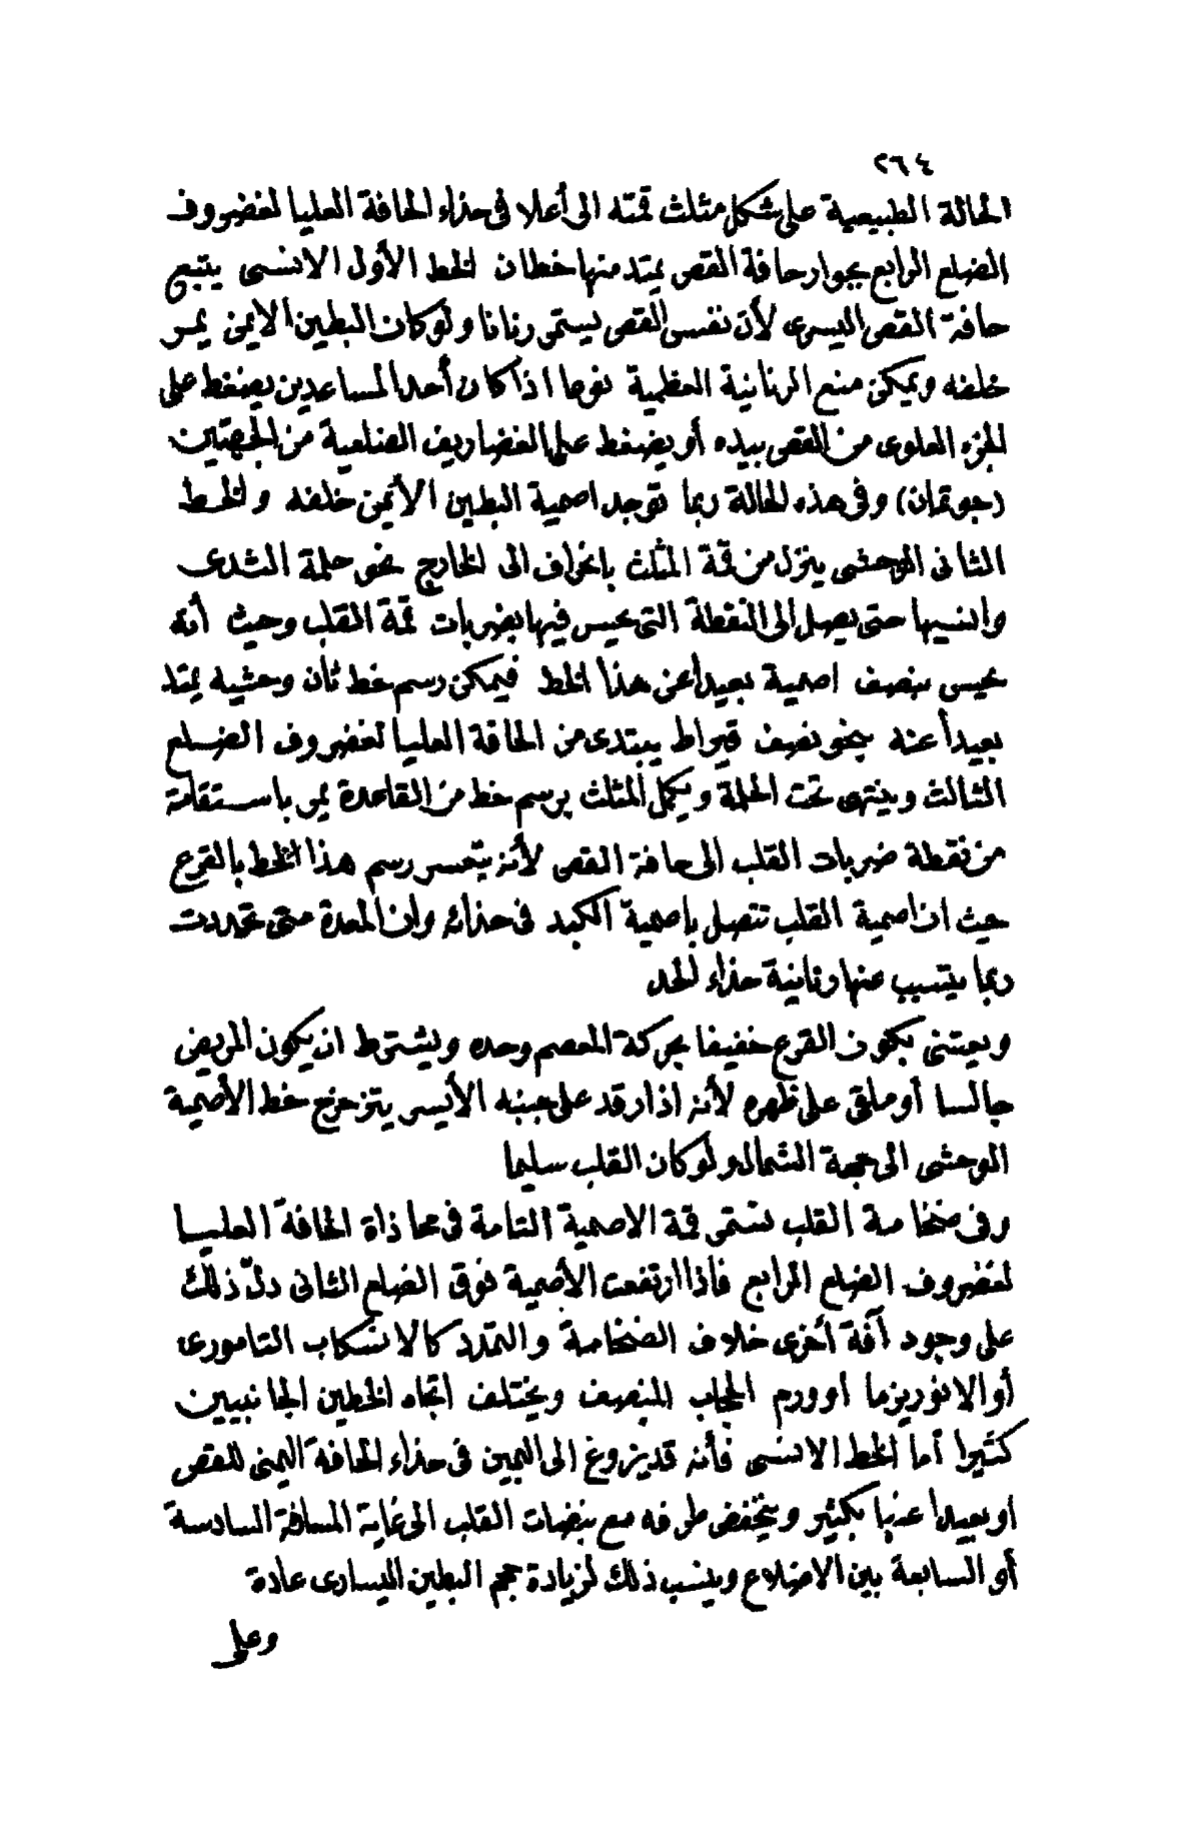 ٢٦٤
الحالة الطبيعية على شكل مثلث قمته الى أعلا فى حذاء الحافة العليا لغضروف
الضلع الرابع بجوار حافة القص يمتد منها خطان الخط الأول الانسى يتبع
حافة القص اليسرى لأن نفس القص يستمر رنانا ولو كان البطين الايمن يمر
خلفه ويمكن منع الرنانية العظمية نوعا اذا كان أحد المساعدين يضغط على
الجزء العلوى من القص بيده أو يضغط على الغضاريف الضلعية من الجهتين
(جوتمان) وفى هذه الحالة ربما توجد اصمية البطين الأيمن خلفه والخط
الثانى الوحشى ينزل من قمة المثلث بانحراف الى الخارج نحو حلمة الثدى
وانسيها حتى يصل الى النقطة التى يحس فيها بضربات قمة القلب وحيث أنه
يحس بنصف اصمية بعيدا عن هذا الخط فيمكن رسم خط ثان وحشيه يمتد
بعيدا عنه بنحو نصف قيراط يبتدى من الحافة العليا لغضروف الضلع
الثالث وينتهى تحت الحلمة ويكمل المثلث برسم خط من القاعدة يمر باستقامة
من نقطة ضربات القلب الى حافة القص لأنه يتعسر رسم هذا الخط بالقرع
حيث ان اصمية القلب تتصل باصمية الكبد فى حذائه وان المعدة متى تمددت
ربما يتسبب عنها رنانية حذاء الحد
ويعتنى بكون القرع خفيفا بحركة المعصم وحده ويشترط ان يكون المريض
جالسا أو ملقى على ظهره لأنه اذا رقد على جنبه الأيسر يتزحزح خط الأصمية
الوحشى الى جهة الشمال ولو كان القلب سليما
وفى ضخامة القلب تستمر قمة الاصمية التامة فى محاذاة الحافة العليا
لغضروف الضلع الرابع فاذا ارتفعت الأصمية فوق الضلع الثانى دلّ ذلك
على وجود آفة أخرى خلاف الضخامة والتمدد كالانسكاب التامورى
أو الانوريزما او ورم الحجاب المنصف ويختلف اتجاه الخطين الجانبيين
كثيرا أما الخط الانسى فأنه قد يزوغ الى اليمين فى حذاء الحافة اليمنى للقص
او بعيدا عنها بكثير وينخفض طرفه مع نبضات القلب الى غاية المسافة السادسة
أو السابعة بين الاضلاع وينسب ذلك لزيادة حجم البطين اليسارى عادة
وعلى